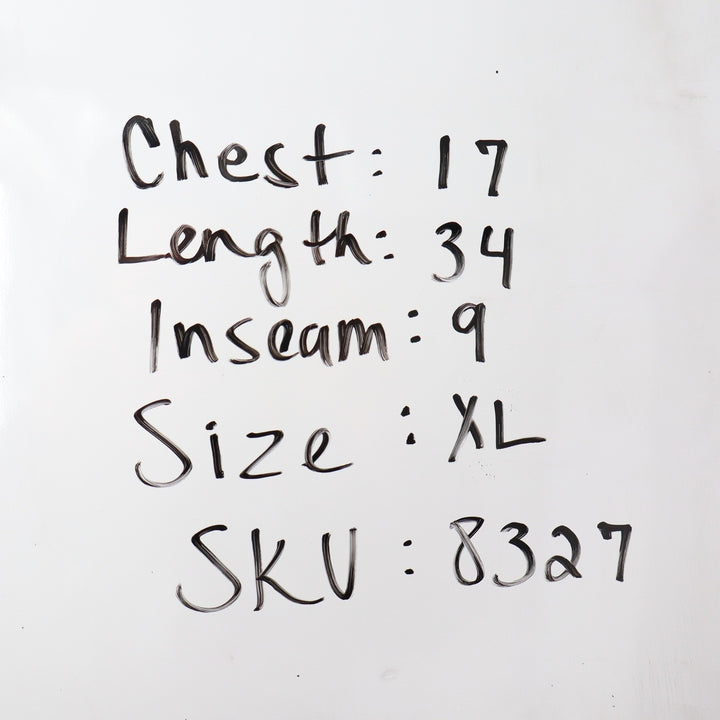 Chest: 17
Length: 34
Inseam: 9
Size: XL
SKU: 8327